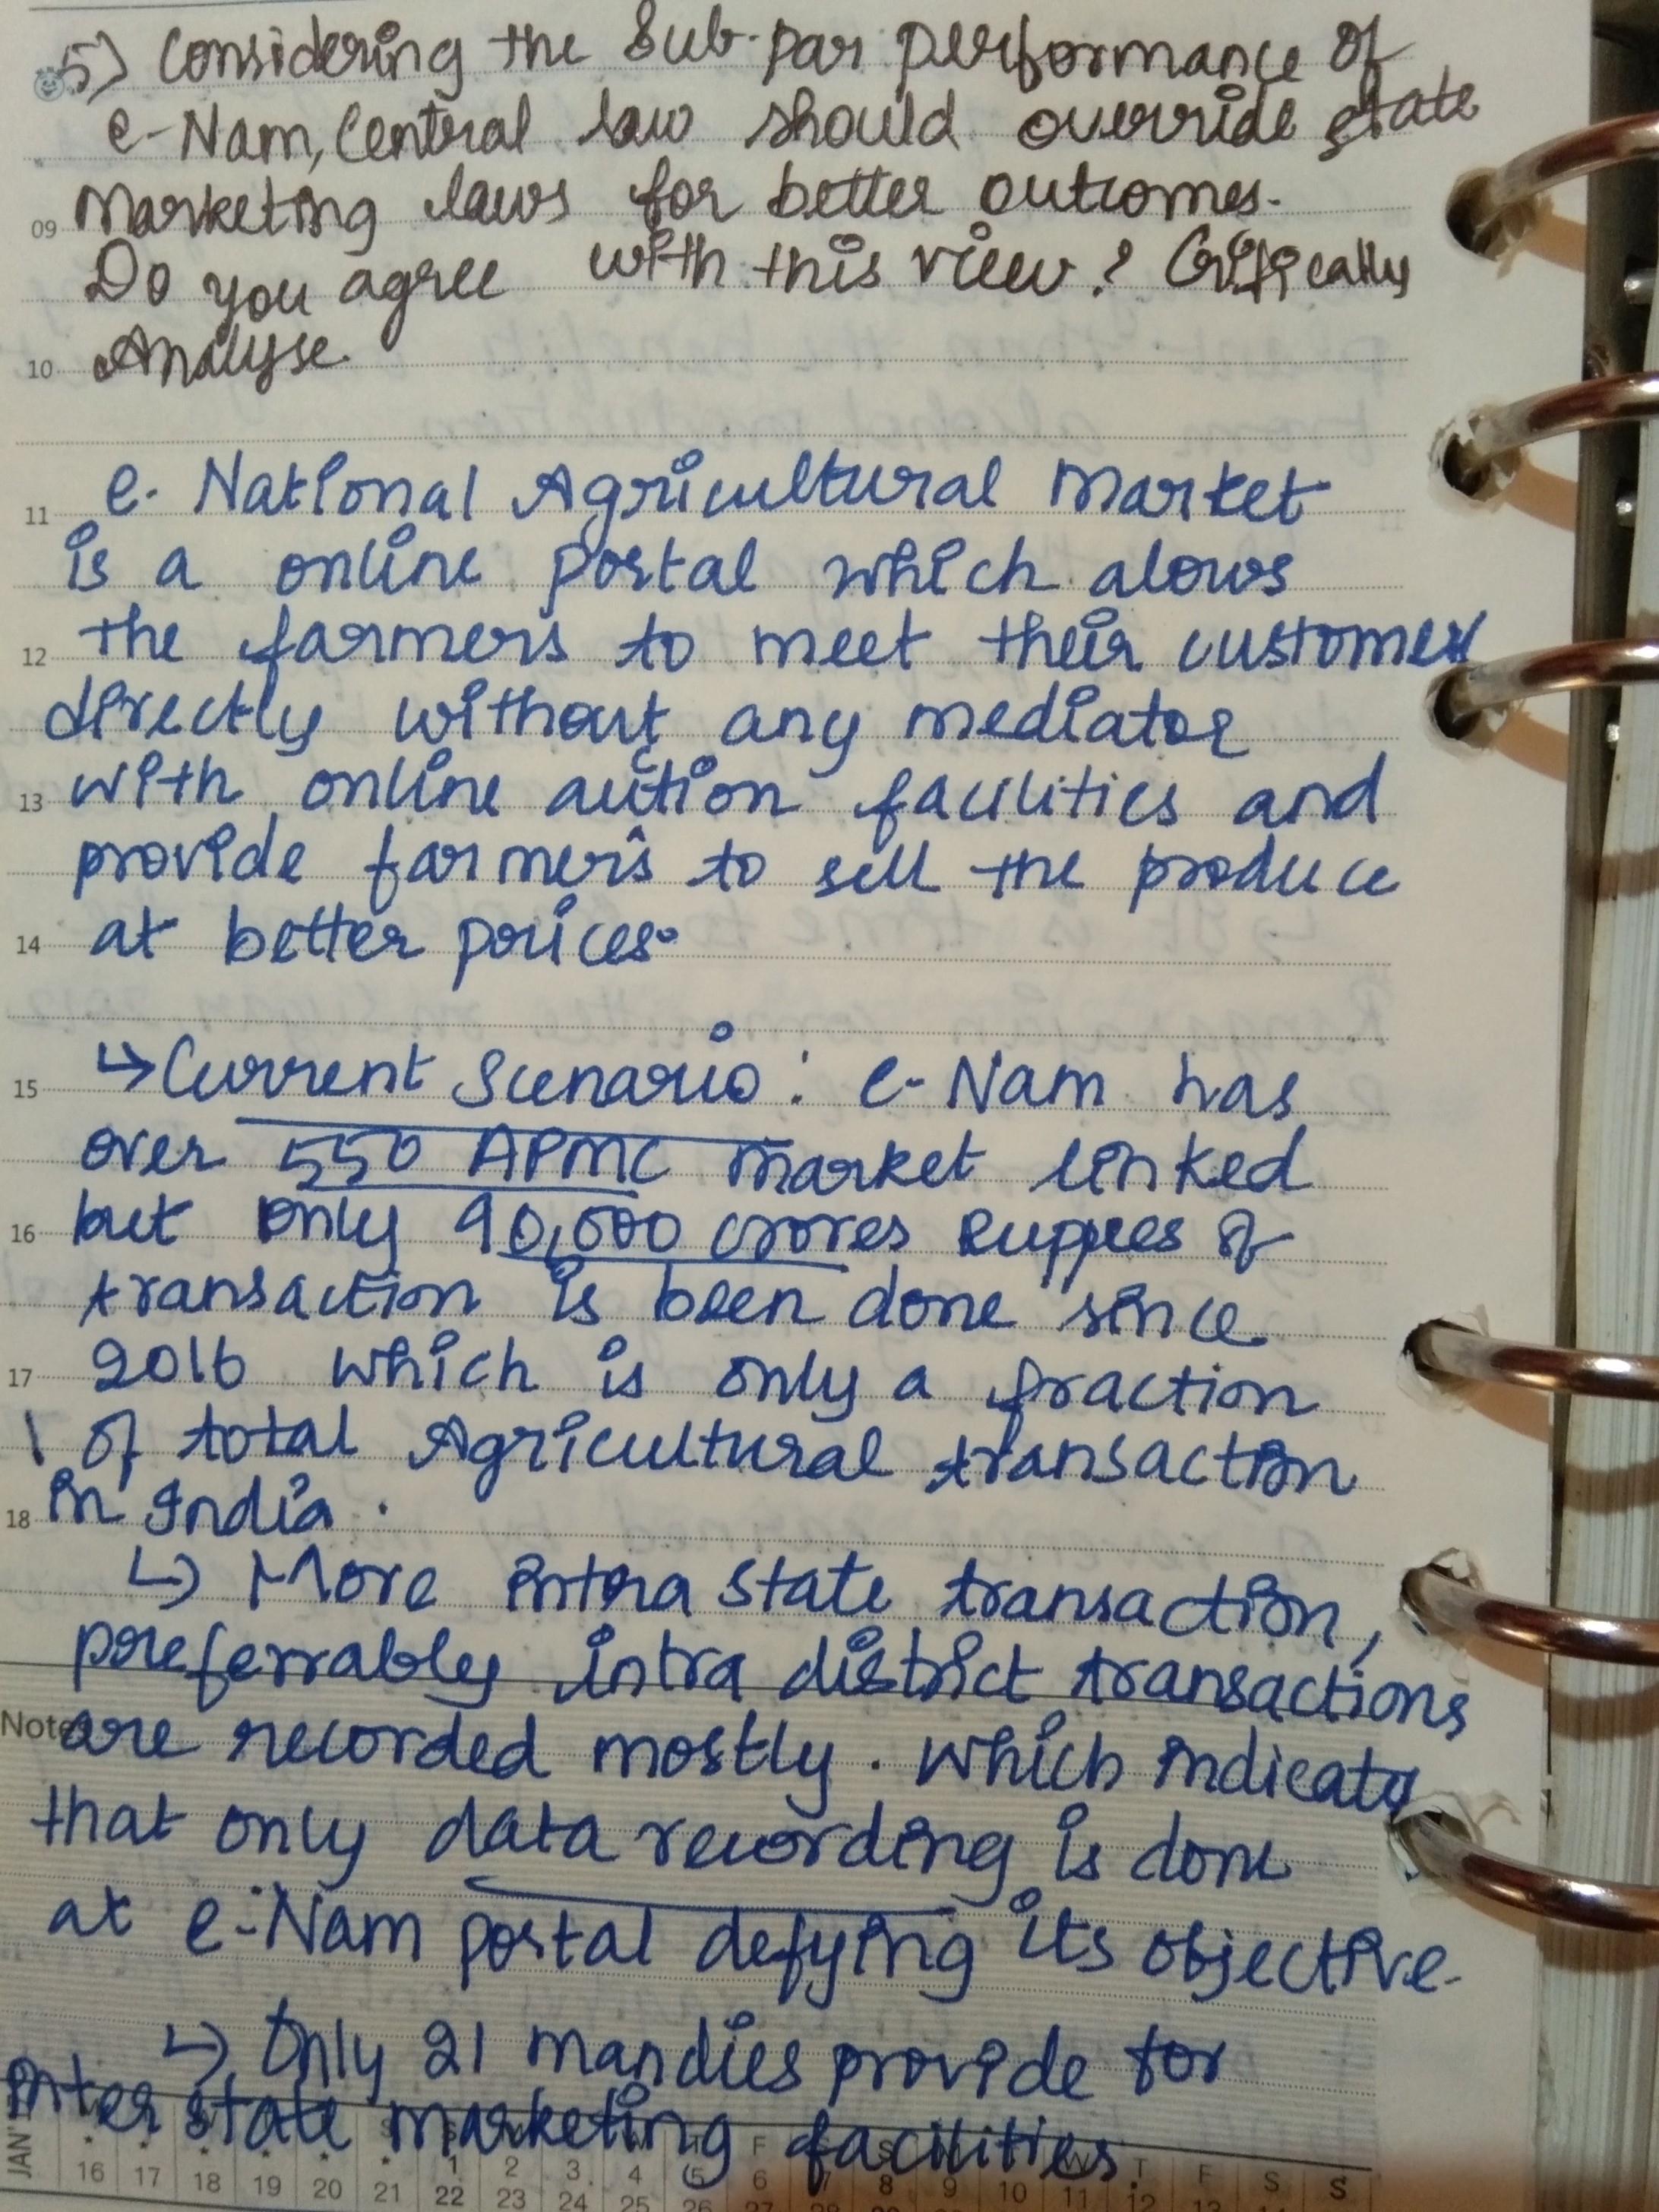 5) Considering the Sub-par performance of
e-Nam, Central law should override state
09 Marketing laws for better outcomes.
Do you agree with this view? Critically
10 Analyse.
11 e. National Agricultural Market
is a online portal which alows
12 the farmers to meet their customer
directly without any mediator
13 with online auction facilities and
provide farmers to sell the produce
14 at better prices.
15 ↳ Current Scenario: e-Nam has
over 550 APMC market linked
16 but only 90,000 crores Ruppes of
transaction is been done since
17 2016 which is only a fraction
of total Agricultural transaction
18 in India.
↳ More intra state transaction,
preferrably intra district transactions
Notes are recorded mostly. Which indicate
that only data recording is done
at e-Nam portal defying its objective.
↳ Only 21 mandies provide for
inter state marketing facilities.
JAN' S F S W T F S S
1 2 3 4 5 6 7 8 9 10 11 12 13 14
16 17 18 19 20 21 22 23 24 25 26 27 28 29